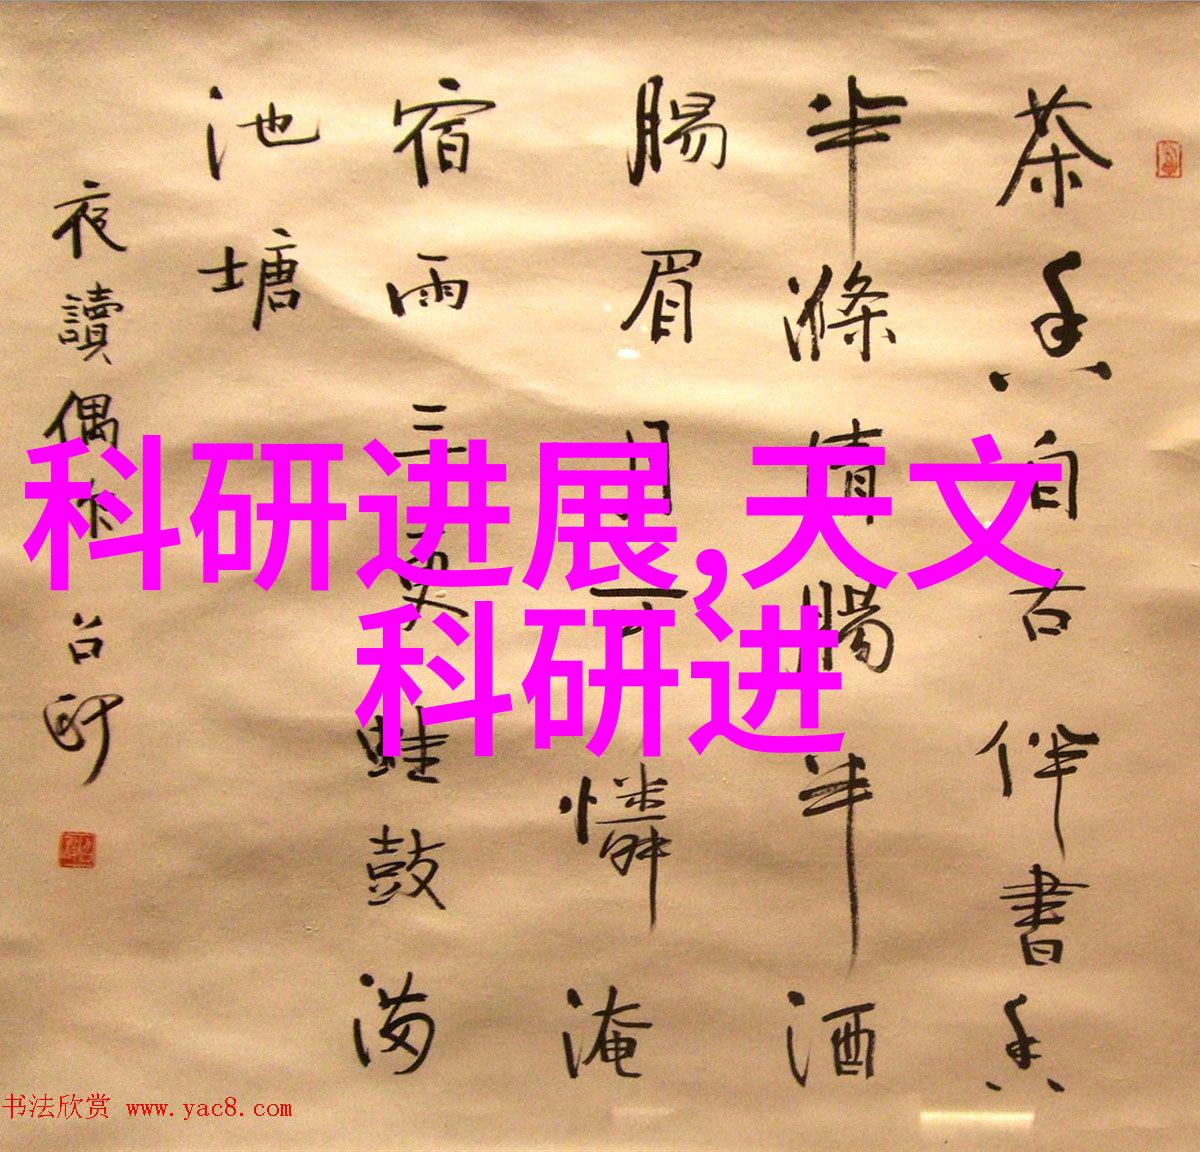 茶香自古伴書香
半滌情腸半酒
腸眉月
憐淹
宿雨三更蛙鼓滿
池塘
夜讀偶作
科研进展,天文
科研进
书法欣赏 www.yac8.com